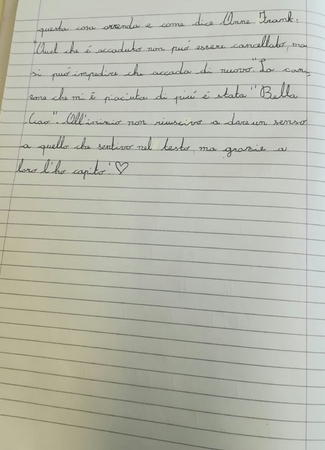 questa cosa orrenda e come dice Anne Frank:
"Quel che è accaduto non può essere cancellato, ma
si può impedire che accada di nuovo". La can,
zone che mi è piaciuta di più è stata "Bella
Ciao". All'inizio non riuscivo a dare un senso
a quello che sentivo nel testo, ma grazie a
loro l'ho capito. ♡